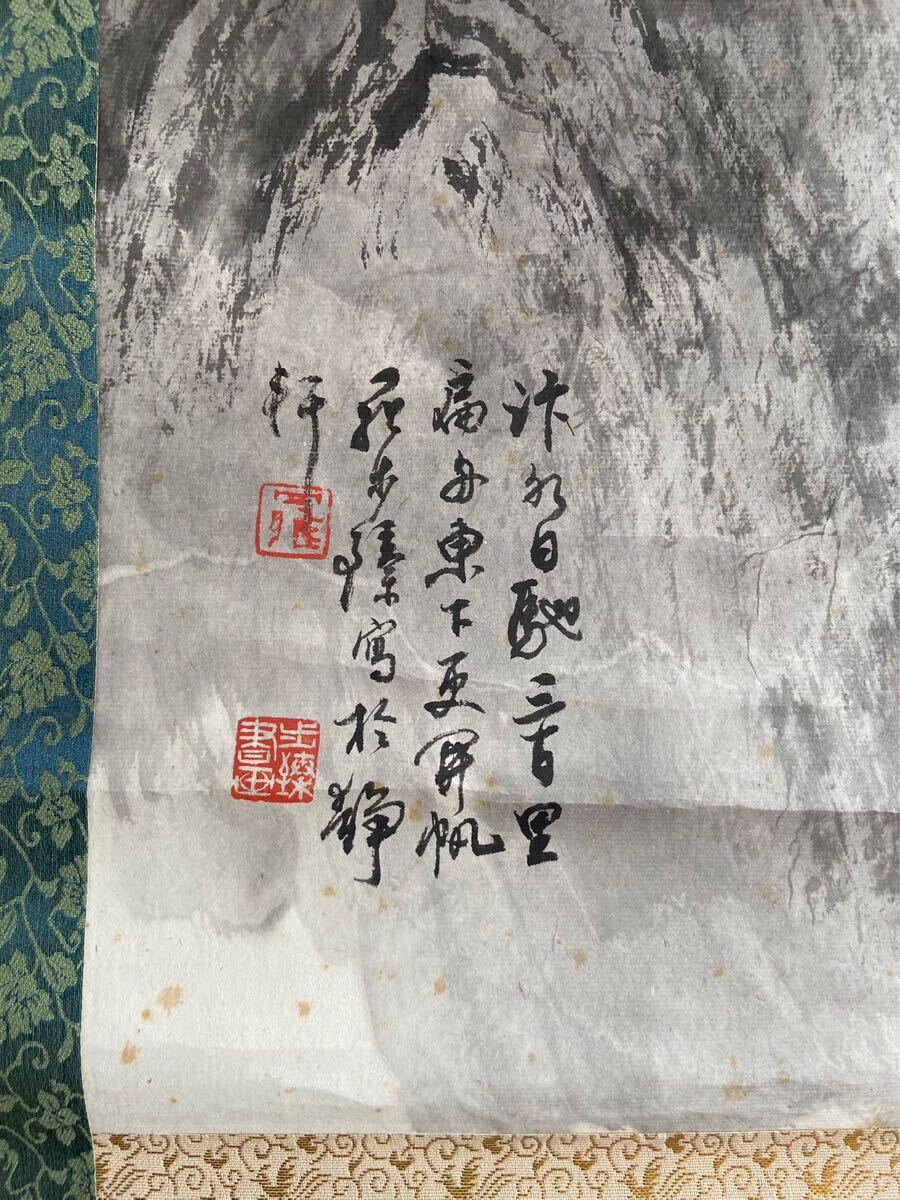 汴水日馳三百里
扁舟東下更開帆
羅步臻寫於靜
軒
步臻
書畫